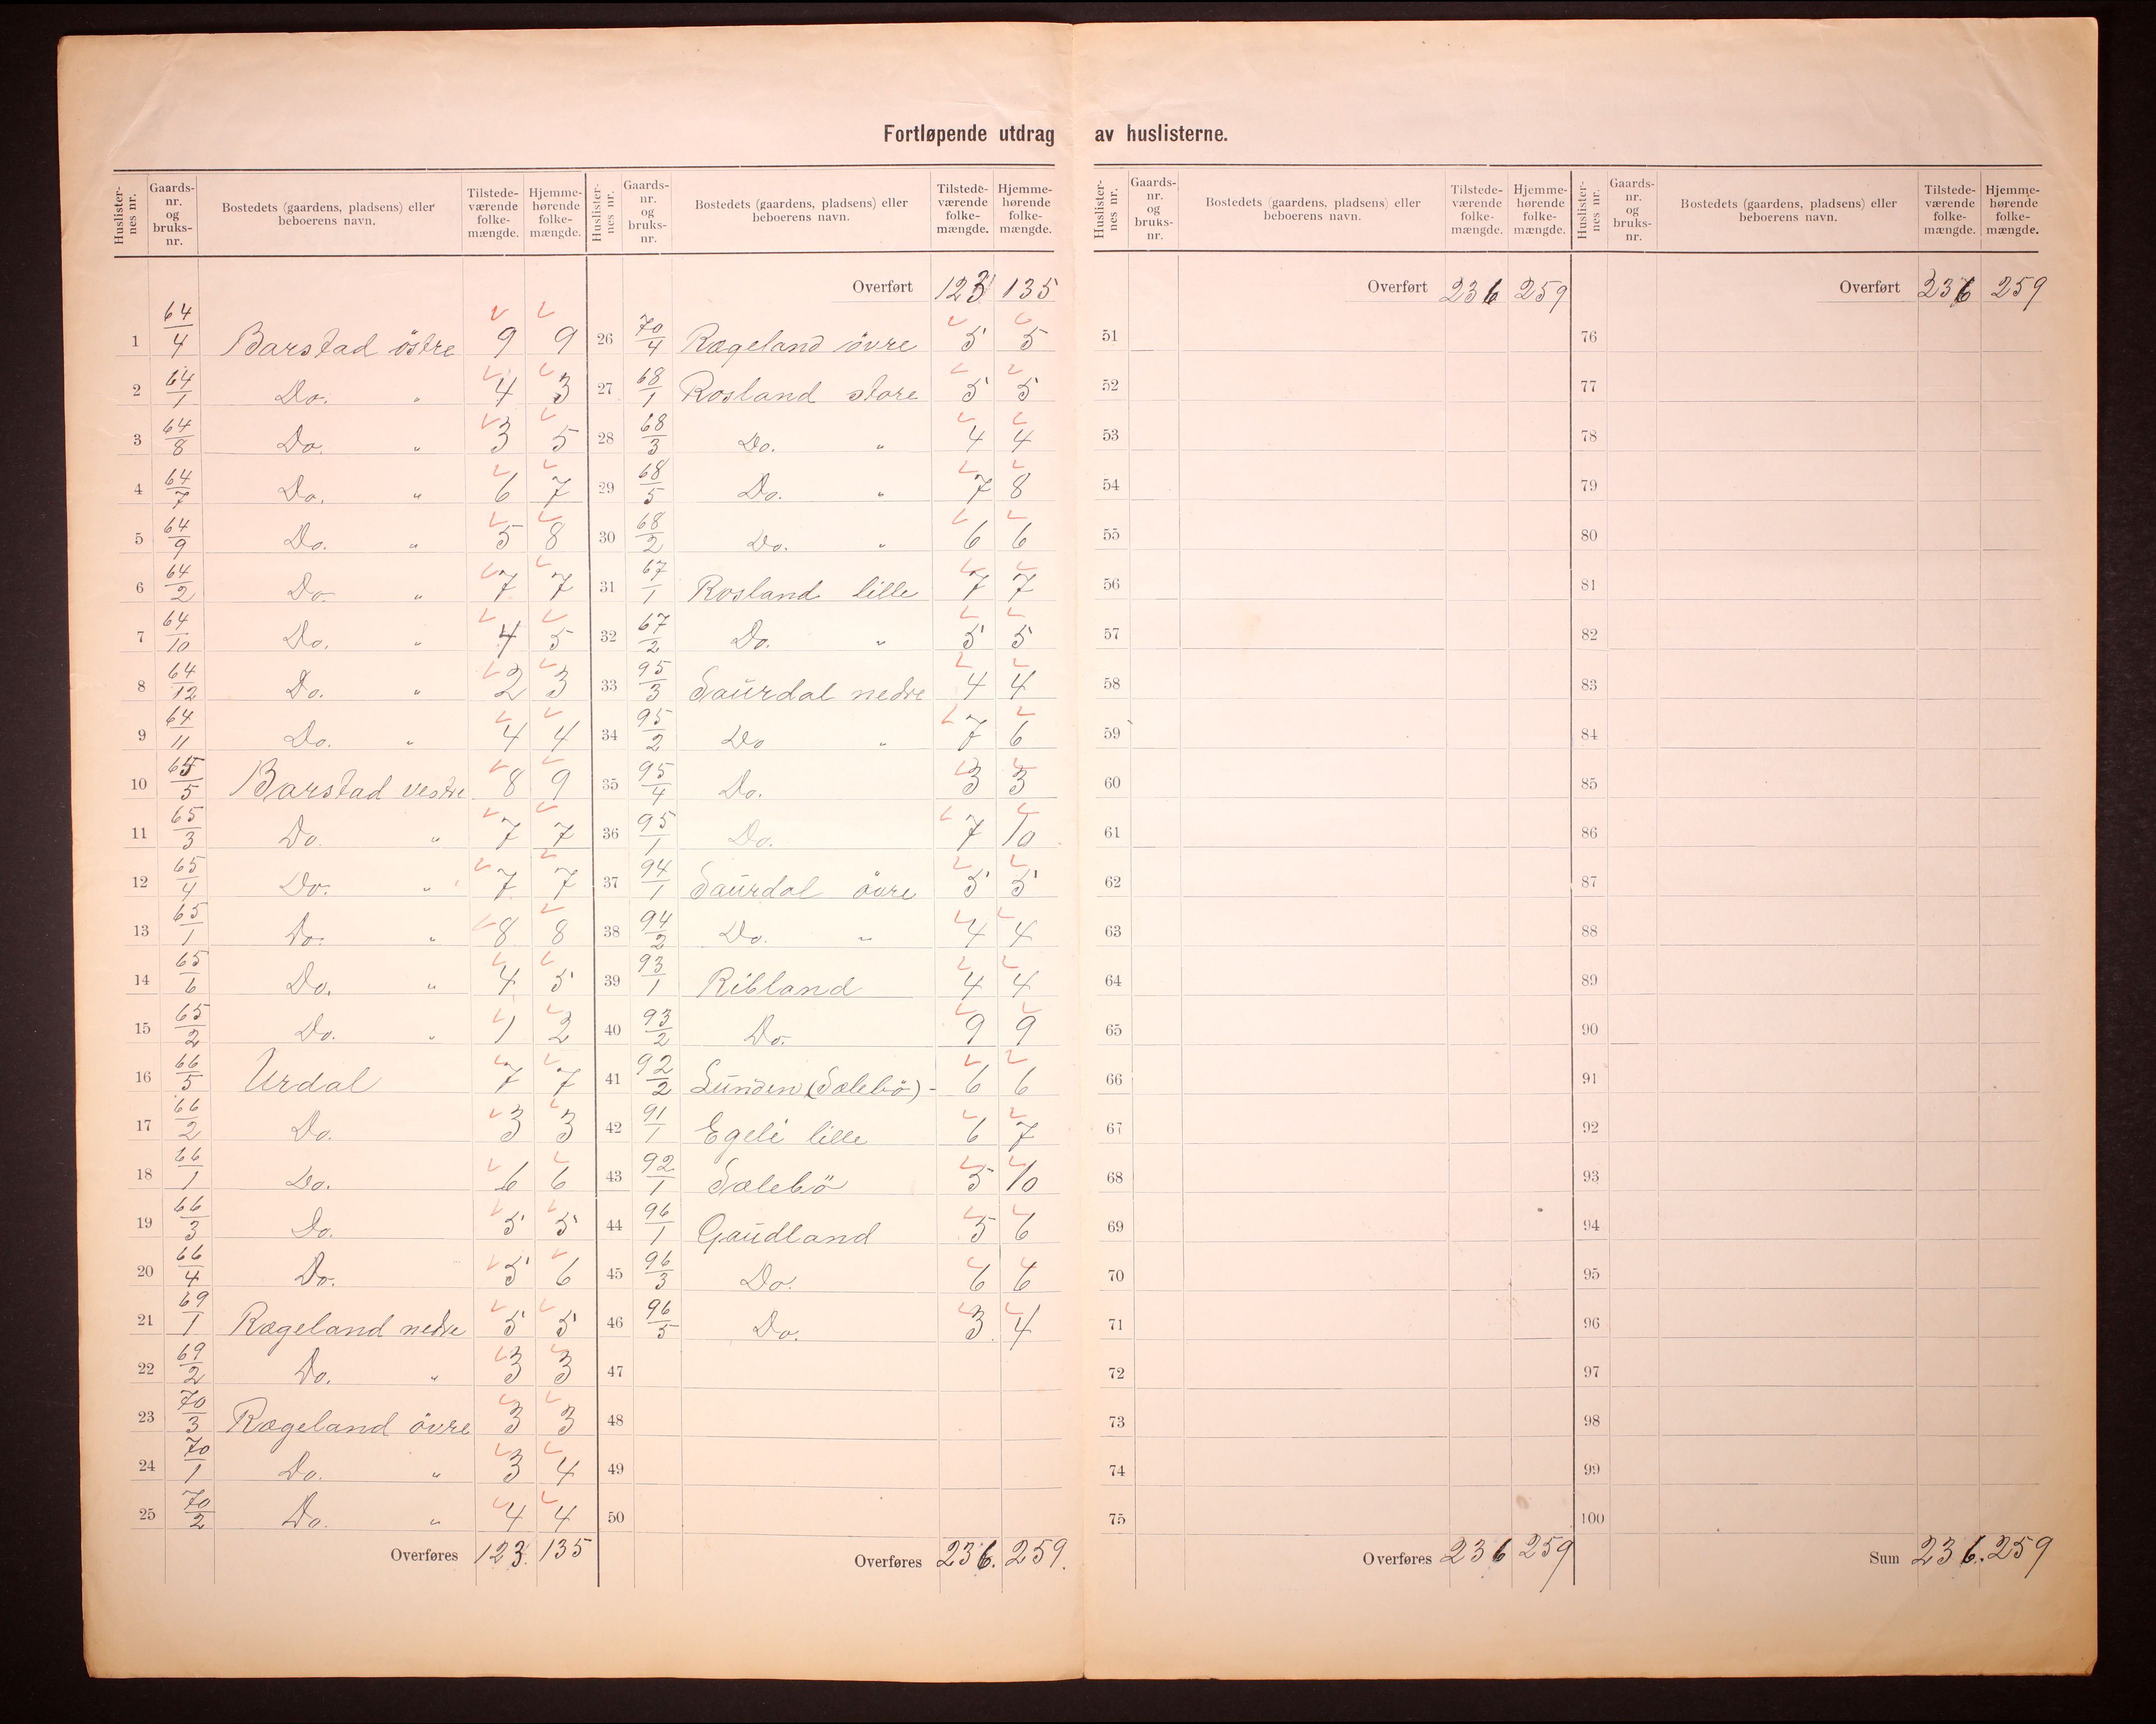 Fortløpende utdrag av huslisterne.
Huslisternes nr. Gaardsnr. og bruksnr. Bostedets (gaardens, pladsens) eller beboerens navn. Tilstedeværende folkemængde. Hjemmehørende folkemængde.
1 64/4 Barstad östre 9 9
2 64/1 Do. " 4 3
3 64/8 Do. " 3 5
4 64/7 Do. " 6 7
5 64/9 Do. " 5 8
6 64/2 Do. " 7 7
7 64/10 Do. " 4 5
8 64/12 Do. " 2 3
9 64/11 Do. " 4 4
10 65/5 Barstad vestre 8 9
11 65/3 Do. " 7 7
12 65/4 Do. " 7 7
13 65/1 Do. " 8 8
14 65/6 Do. " 4 5
15 65/2 Do. " 1 2
16 66/5 Urdal 7 7
17 66/2 Do. 3 3
18 66/1 Do. 6 6
19 66/3 Do. 5 5
20 66/4 Do. 5 6
21 69/1 Rægeland nedre 5 5
22 69/2 Do. " 3 3
23 70/3 Rægeland övre 3 3
24 70/1 Do. " 3 4
25 70/2 Do. " 4 4
Overføres 123. 135
Huslisternes nr. Gaardsnr. og bruksnr. Bostedets (gaardens, pladsens) eller beboerens navn. Tilstedeværende folkemængde. Hjemmehørende folkemængde.
Overført 123 135
26 70/4 Rægeland övre 5 5
27 68/1 Rosland store 5 5
28 68/3 Do. " 4 4
29 68/5 Do. " 7 8
30 68/2 Do. " 6 6
31 67/1 Rosland lille 7 7
32 67/2 Do. " 5 5
33 95/3 Saurdal nedre 4 4
34 95/2 Do " 7 6
35 95/4 Do. 3 3
36 95/1 Do. 7 10
37 94/1 Saurdal övre 5 5
38 94/2 Do. " 4 4
39 93/1 Ribland 4 4
40 93/2 Do. 9 9
41 92/2 Lunden (Sælebö) - 6 6
42 91/1 Egeli lille 6 7
43 92/1 Sælebö 5 10
44 96/1 Gaudland 5 6
45 96/3 Do. 6 6
46 96/5 Do. 3 4
47
48
49
50
Overføres 236. 259.
Huslisternes nr. Gaardsnr. og bruksnr. Bostedets (gaardens, pladsens) eller beboerens navn. Tilstedeværende folkemængde. Hjemmehørende folkemængde.
Overført 236 259
51
52
53
54
55
56
57
58
59
60
61
62
63
64
65
66
67
68
69
70
71
72
73
74
75
Overføres 236 259
Huslisternes nr. Gaardsnr. og bruksnr. Bostedets (gaardens, pladsens) eller beboerens navn. Tilstedeværende folkemængde. Hjemmehørende folkemængde.
Overført 236 259
76
77
78
79
80
81
82
83
84
85
86
87
88
89
90
91
92
93
94
95
96
97
98
99
100
Sum 236. 259